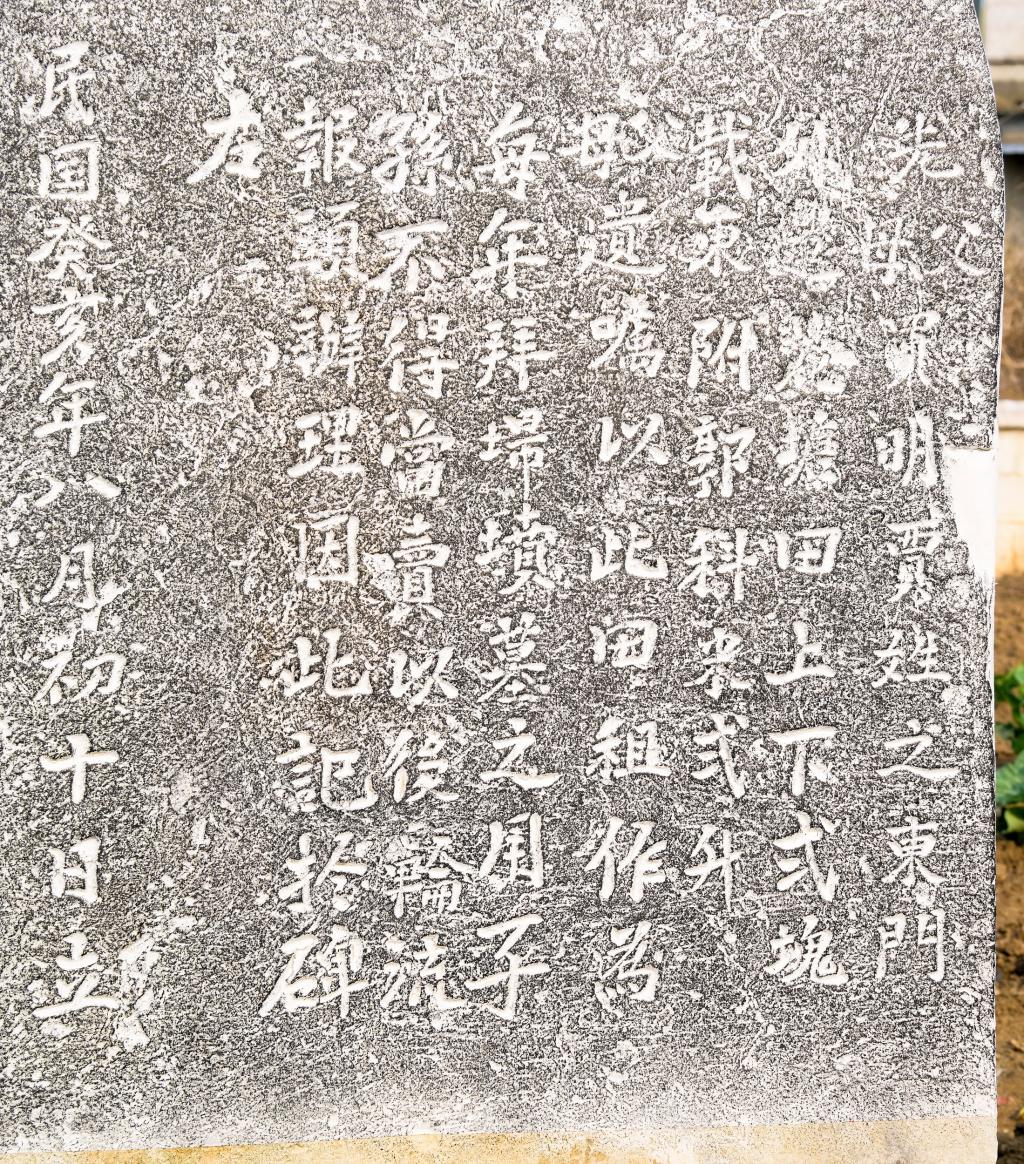 先父母買明買姓之東門
塘田上下弍塊
載東附郭科米弍升
父母遺嘱以此田租作為
每年拜掃墳墓之用子
孫不得當賣以後輪流
報頭辦理因此記於碑
左
民国癸亥年八月初十日立